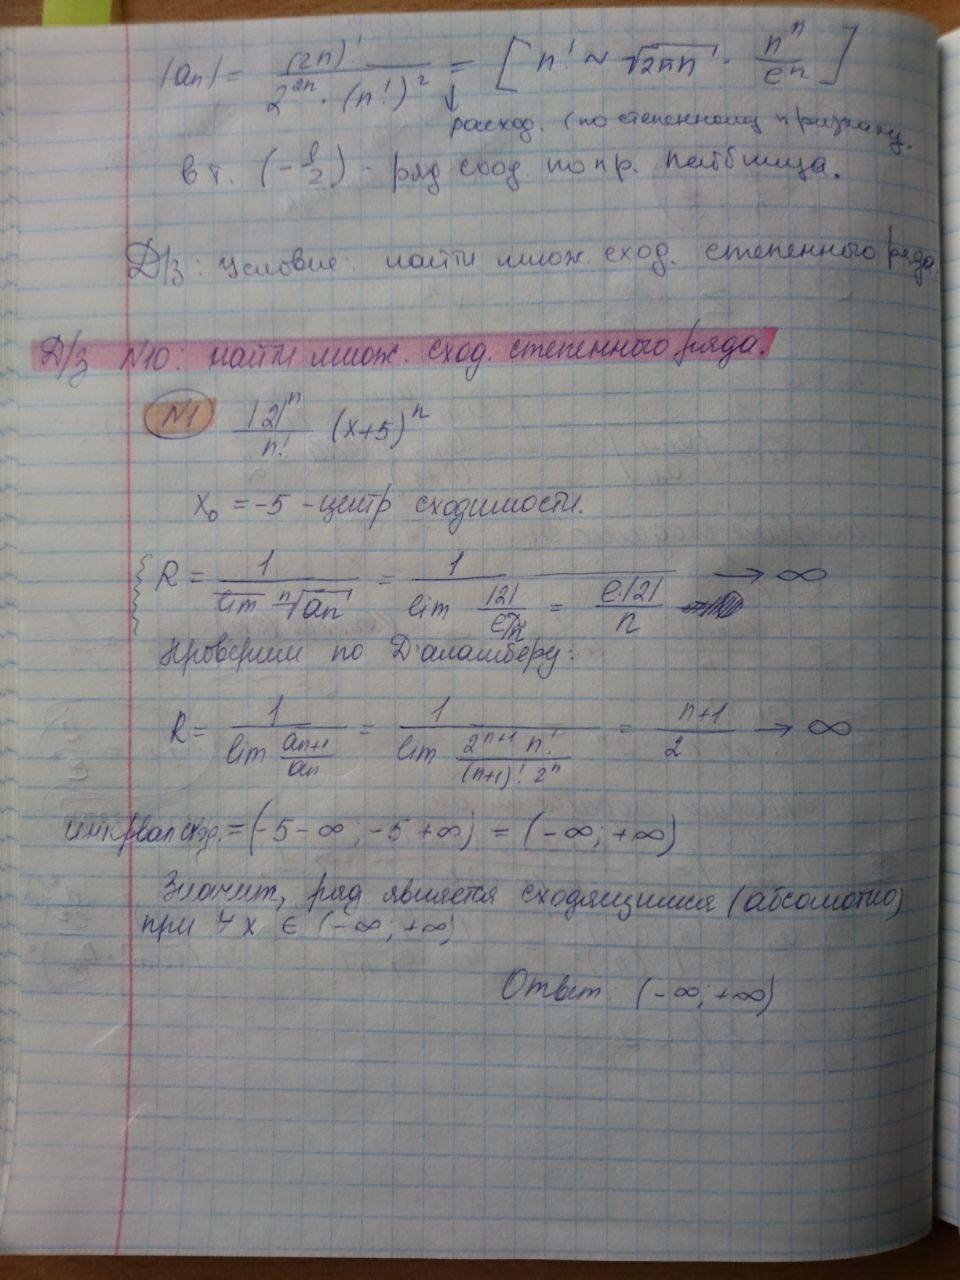 |an| = (2n)! / 2^2n · (n!)^2 = [ n! ~ √2πn · n^n / e^n ]
↓ расход. (по степенному признаку.
в т. (-1/2) - ряд сход. по пр. Лейбница.
Д/з: условие: найти множ. сход. степенного ряда.
Д/з N10: найти множ. сход. степенного ряда.
N1 |2|^n / n! (x+5)^n
x₀ = -5 - центр сходимости.
R = 1 / lim ⁿ√an = 1 / lim |2| / = e·|2| / n → ∞
Проверим по Д'аламберу:
R = 1 / lim an+1 / an = 1 / lim 2^n+1 n! / (n+1)! 2^n = n+1 / 2 → ∞
интервал сход. = (-5-∞; -5+∞) = (-∞; +∞)
Значит, ряд является сходящимся (абсолютно)
при ∀ x ∈ (-∞; +∞)
Ответ (-∞; +∞)